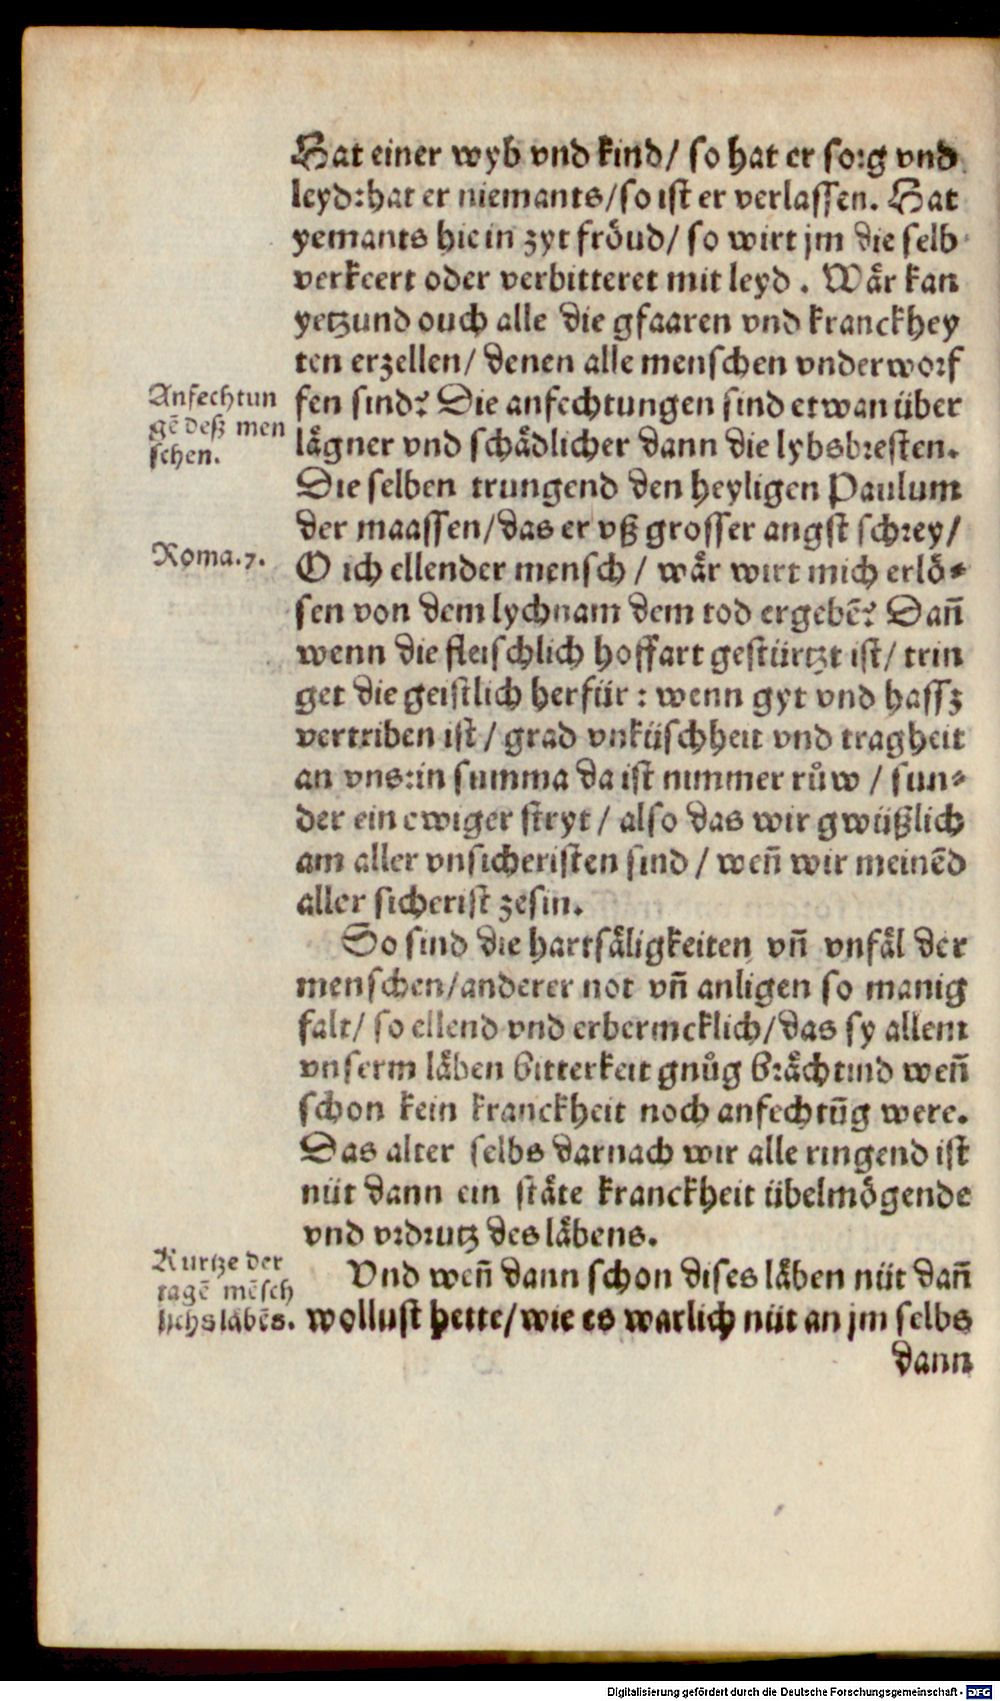 Hat einer wyb vnd kind/ so hat er sorg vnd
leyd: hat er niemants/ so ist er verlassen. Hat
yemants hie in zyt fröud/ so wirt jm die selb
verkeert oder verbitteret mit leyd. Wär kan
yetzund ouch alle die gfaaren vnd kranckhey
ten erzellen/ denen alle menschen vnderworf
Anfechtun
gē deß men
schen.
fen sind? Die anfechtungen sind etwan über
lägner vnd schädlicher dann die lybsbresten.
Die selben trungend den heyligen Paulum
der maassen/ das er vß grosser angst schrey/
Roma.7.
O ich ellender mensch/ wär wirt mich erlö⸗
sen von dem lychnam dem tod ergebē? Dañ
wenn die fleischlich hoffart gestürtzt ist/ trin
get die geistlich herfür: wenn gyt vnd hassz
vertriben ist/ grad vnküschheit vnd tragheit
an vns: in summa da ist nimmer růw/ sun⸗
der ein ewiger stryt/ also das wir gwüßlich
am aller vnsicheristen sind/ weñ wir meinēd
aller sicherist zesin.
So sind die hartsäligkeiten vñ vnfäl der
menschen/ anderer not vñ anligen so manig
falt/ so ellend vnd erbermcklich/ das sy allem
vnserm läben bitterkeit gnůg brächtind weñ
schon kein kranckheit noch anfechtūg were.
Das alter selbs darnach wir alle ringend ist
nüt dann ein stäte kranckheit übelmögende
vnd vrdrutz des läbens.
Kurtze der
tagē mēsch
lichs läbēs.
Vnd weñ dann schon dises läben nüt dañ
wollust hette/ wie es warlich nüt an jm selbs
dann
Digitalisierung gefördert durch die Deutsche Forschungsgemeinschaft - DFG